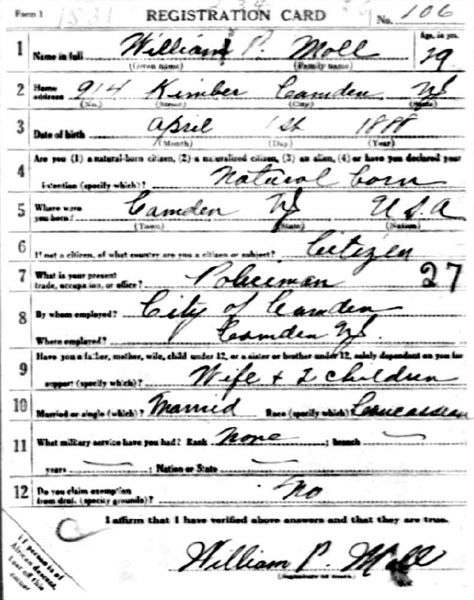 Form 1 REGISTRATION CARD No. 106
1 Name in full William P. Moll Age, in yrs. 29
(Given name) (Family name)
2 Home address 914 Kimber Camden NJ
(No.) (Street) (City) (State)
3 Date of birth April 1st 1888
(Month) (Day) (Year)
Are you (1) a natural-born citizen, (2) a naturalized citizen, (3) an alien, (4) or have you declared your
4 intention (specify which)? Natural born
5 Where were you born? Camden NJ U.S.A
(Town) (State) (Nation)
6 If not a citizen, of what country are you a citizen or subject? Citizen
7 What is your present trade, occupation, or office? Policeman 27
8 By whom employed? City of Camden
Where employed? Camden NJ.
9 Have you a father, mother, wife, child under 12, or a sister or brother under 12, solely dependent on you for
support (specify which)? Wife + 2 children
10 Married or single (which)? Married Race (specify which)? Caucassean
11 What military service have you had? Rank None ; branch —
years — ; Nation or State —
12 Do you claim exemption from draft (specify grounds)? No
I affirm that I have verified above answers and that they are true.
William P. Moll
If person is of
African descent,
tear off this
corner